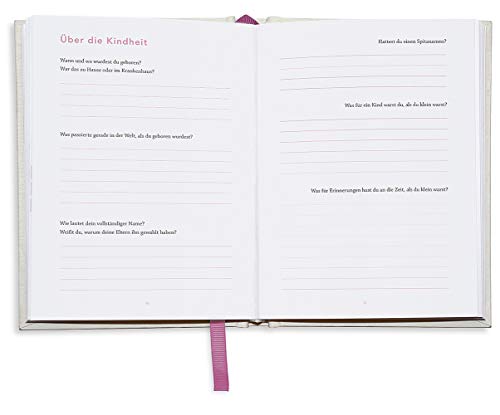 Über die Kindheit
Wann und wo wurdest du geboren?
War das zu Hause oder im Krankenhaus?
Was passierte gerade in der Welt, als du geboren wurdest?
Wie lautet dein vollständiger Name?
Weißt du, warum deine Eltern ihn gewählt haben?
Hattest du einen Spitznamen?
Was für ein Kind warst du, als du klein warst?
Was für Erinnerungen hast du an die Zeit, als du klein warst?